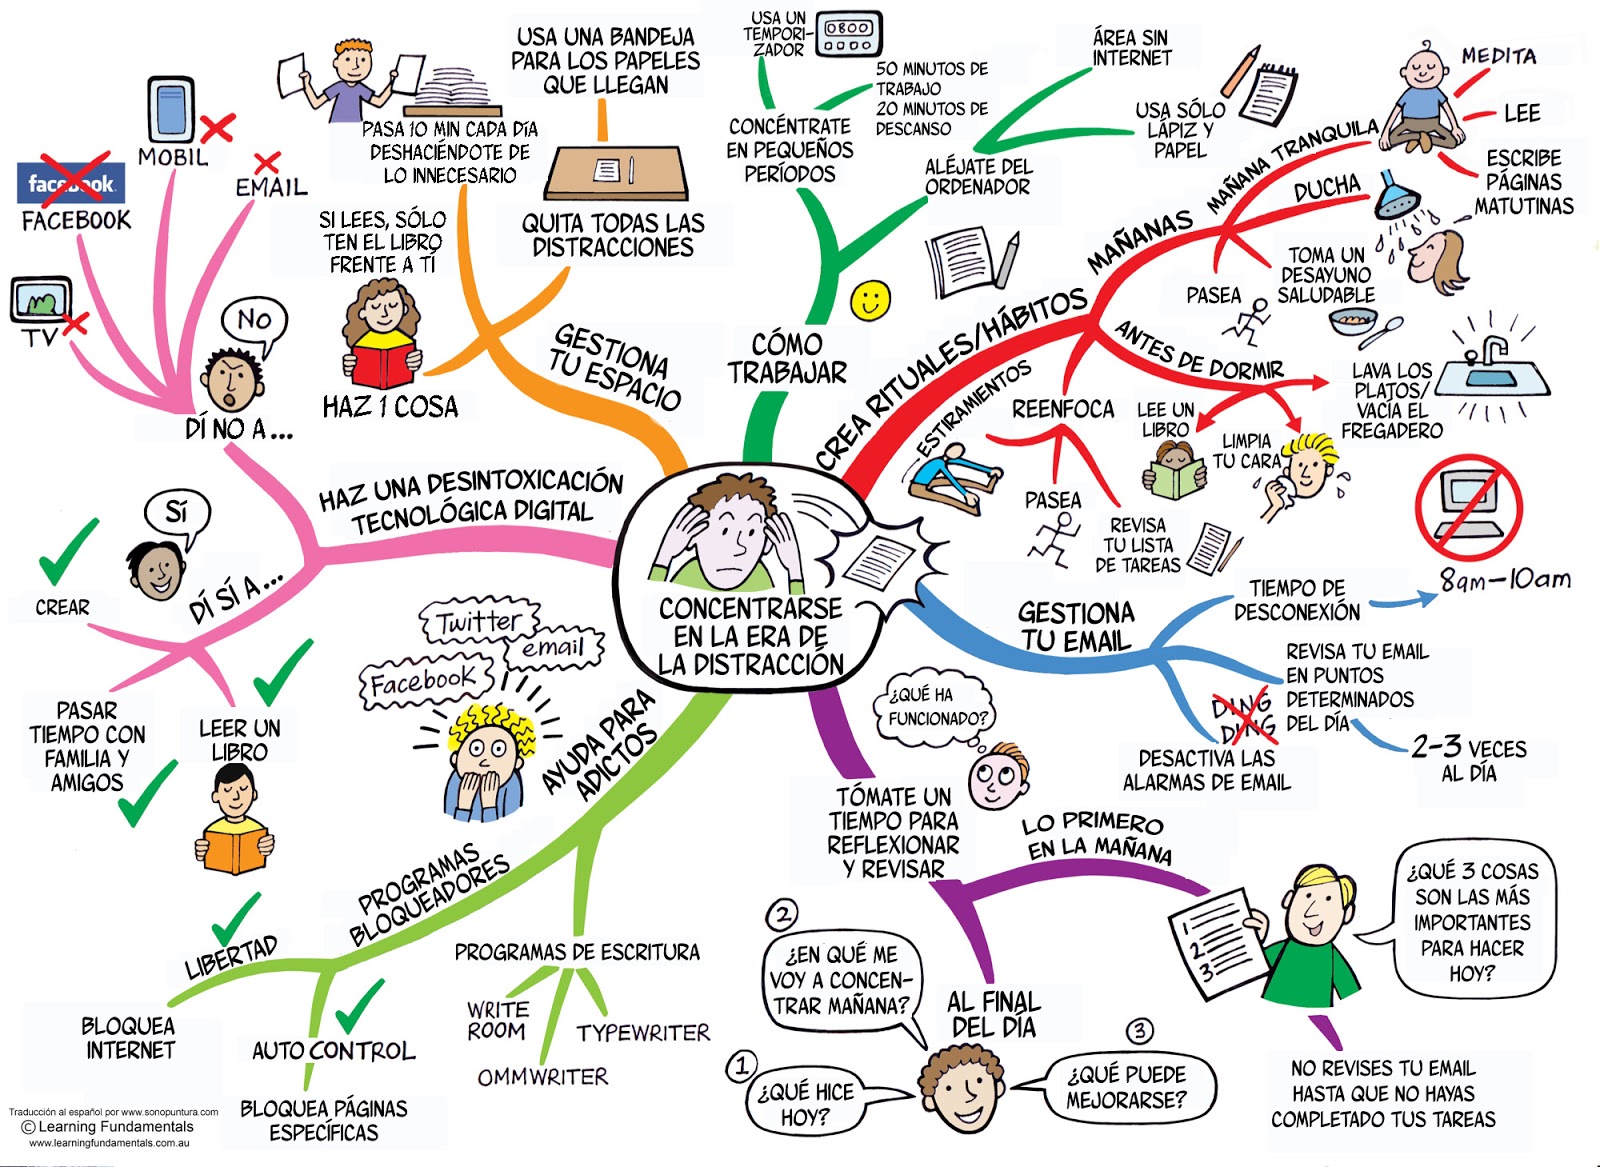 CONCENTRARSE
EN LA ERA DE
LA DISTRACCIÓN
CREA RITUALES/HÁBITOS
MAÑANAS
MAÑANA TRANQUILA
MEDITA
LEE
ESCRIBE
PÁGINAS
MATUTINAS
DUCHA
TOMA UN
DESAYUNO
SALUDABLE
PASEA
ANTES DE DORMIR
LAVA LOS
PLATOS/
VACÍA EL
FREGADERO
LEE UN
LIBRO
LIMPIA
TU CARA
REENFOCA
ESTIRAMIENTOS
PASEA
REVISA
TU LISTA
DE TAREAS
GESTIONA
TU EMAIL
TIEMPO DE
DESCONEXIÓN
8am-10am
REVISA TU EMAIL
EN PUNTOS
DETERMINADOS
DEL DÍA
2-3 VECES
AL DÍA
DING
DING
DESACTIVA LAS
ALARMAS DE EMAIL
¿QUÉ HA
FUNCIONADO?
TÓMATE UN
TIEMPO PARA
REFLEXIONAR
Y REVISAR
LO PRIMERO
EN LA MAÑANA
1
2
3
¿QUÉ 3 COSAS
SON LAS MÁS
IMPORTANTES
PARA HACER
HOY?
NO REVISES TU EMAIL
HASTA QUE NO HAYAS
COMPLETADO TUS TAREAS
AL FINAL
DEL DÍA
1
¿QUÉ HICE
HOY?
2
¿EN QUÉ ME
VOY A CONCEN-
TRAR MAÑANA?
3
¿QUÉ PUEDE
MEJORARSE?
AYUDA PARA
ADICTOS
Twitter
email
Facebook
PROGRAMAS DE ESCRITURA
WRITE
ROOM
OMMWRITER
TYPEWRITER
PROGRAMAS
BLOQUEADORES
LIBERTAD
BLOQUEA
INTERNET
AUTO CONTROL
BLOQUEA PÁGINAS
ESPECÍFICAS
HAZ UNA DESINTOXICACIÓN
TECNOLÓGICA DIGITAL
DÍ SÍ A...
Sí
CREAR
PASAR
TIEMPO CON
FAMILIA Y
AMIGOS
LEER UN
LIBRO
DÍ NO A...
No
TV
facebook
FACEBOOK
MOBIL
EMAIL
GESTIONA
TU ESPACIO
HAZ 1 COSA
SI LEES, SÓLO
TEN EL LIBRO
FRENTE A TÍ
PASA 10 MIN CADA DÍA
DESHACIÉNDOTE DE
LO INNECESARIO
QUITA TODAS LAS
DISTRACCIONES
USA UNA BANDEJA
PARA LOS PAPELES
QUE LLEGAN
CÓMO
TRABAJAR
CONCÉNTRATE
EN PEQUEÑOS
PERÍODOS
USA UN
TEMPORI-
ZADOR
0800
50 MINUTOS DE
TRABAJO
20 MINUTOS DE
DESCANSO
ALÉJATE DEL
ORDENADOR
ÁREA SIN
INTERNET
USA SÓLO
LÁPIZ Y
PAPEL
Traducción al español por www.sonopuntura.com
© Learning Fundamentals
www.learningfundamentals.com.au